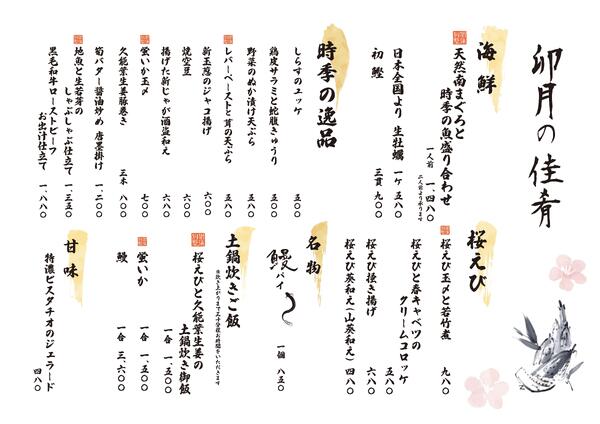 卯月の佳肴
海鮮
天然南まぐろと
時季の魚盛り合わせ
一人前 一、四八〇
二人前より承ります
日本全国より 生牡蠣 一ケ 五八〇
初鰹 三貫 九〇〇
時季の逸品
しらすのユッケ 五〇〇
鶏皮サラミと蛇腹きゅうり 五八〇
野菜のぬか漬け天ぷら 五八〇
レバーペーストと茸の天ぷら 五八〇
新玉葱のジャコ揚げ 六〇〇
焼空豆 六〇〇
揚げた新じゃが酒盗和え 六八〇
蛍いか玉〆 七〇〇
久能葉生姜豚巻き 三本 八〇〇
筍バター醤油炒め 唐墨掛け 一、二〇〇
地魚と生若芽の
しゃぶしゃぶ仕立て 一、三五〇
黒毛和牛ローストビーフ
お出汁仕立て 一、八八〇
桜えび
桜えび玉〆と若竹煮 九八〇
桜えびと春キャベツの
クリームコロッケ 五八〇
桜えび掻き揚げ 六八〇
桜えび葵和え(山葵和え) 四八〇
名物
鰻パイ 一個 八五〇
土鍋炊きご飯
※炊き上がりまで三十分程お時間をいただきます
桜えびと久能葉生姜の
土鍋炊き御飯
一合 一、五〇〇
蛍いか 一合 一、五〇〇
鰻 一合 三、六〇〇
甘味
特濃ピスタチオのジェラード
四八〇